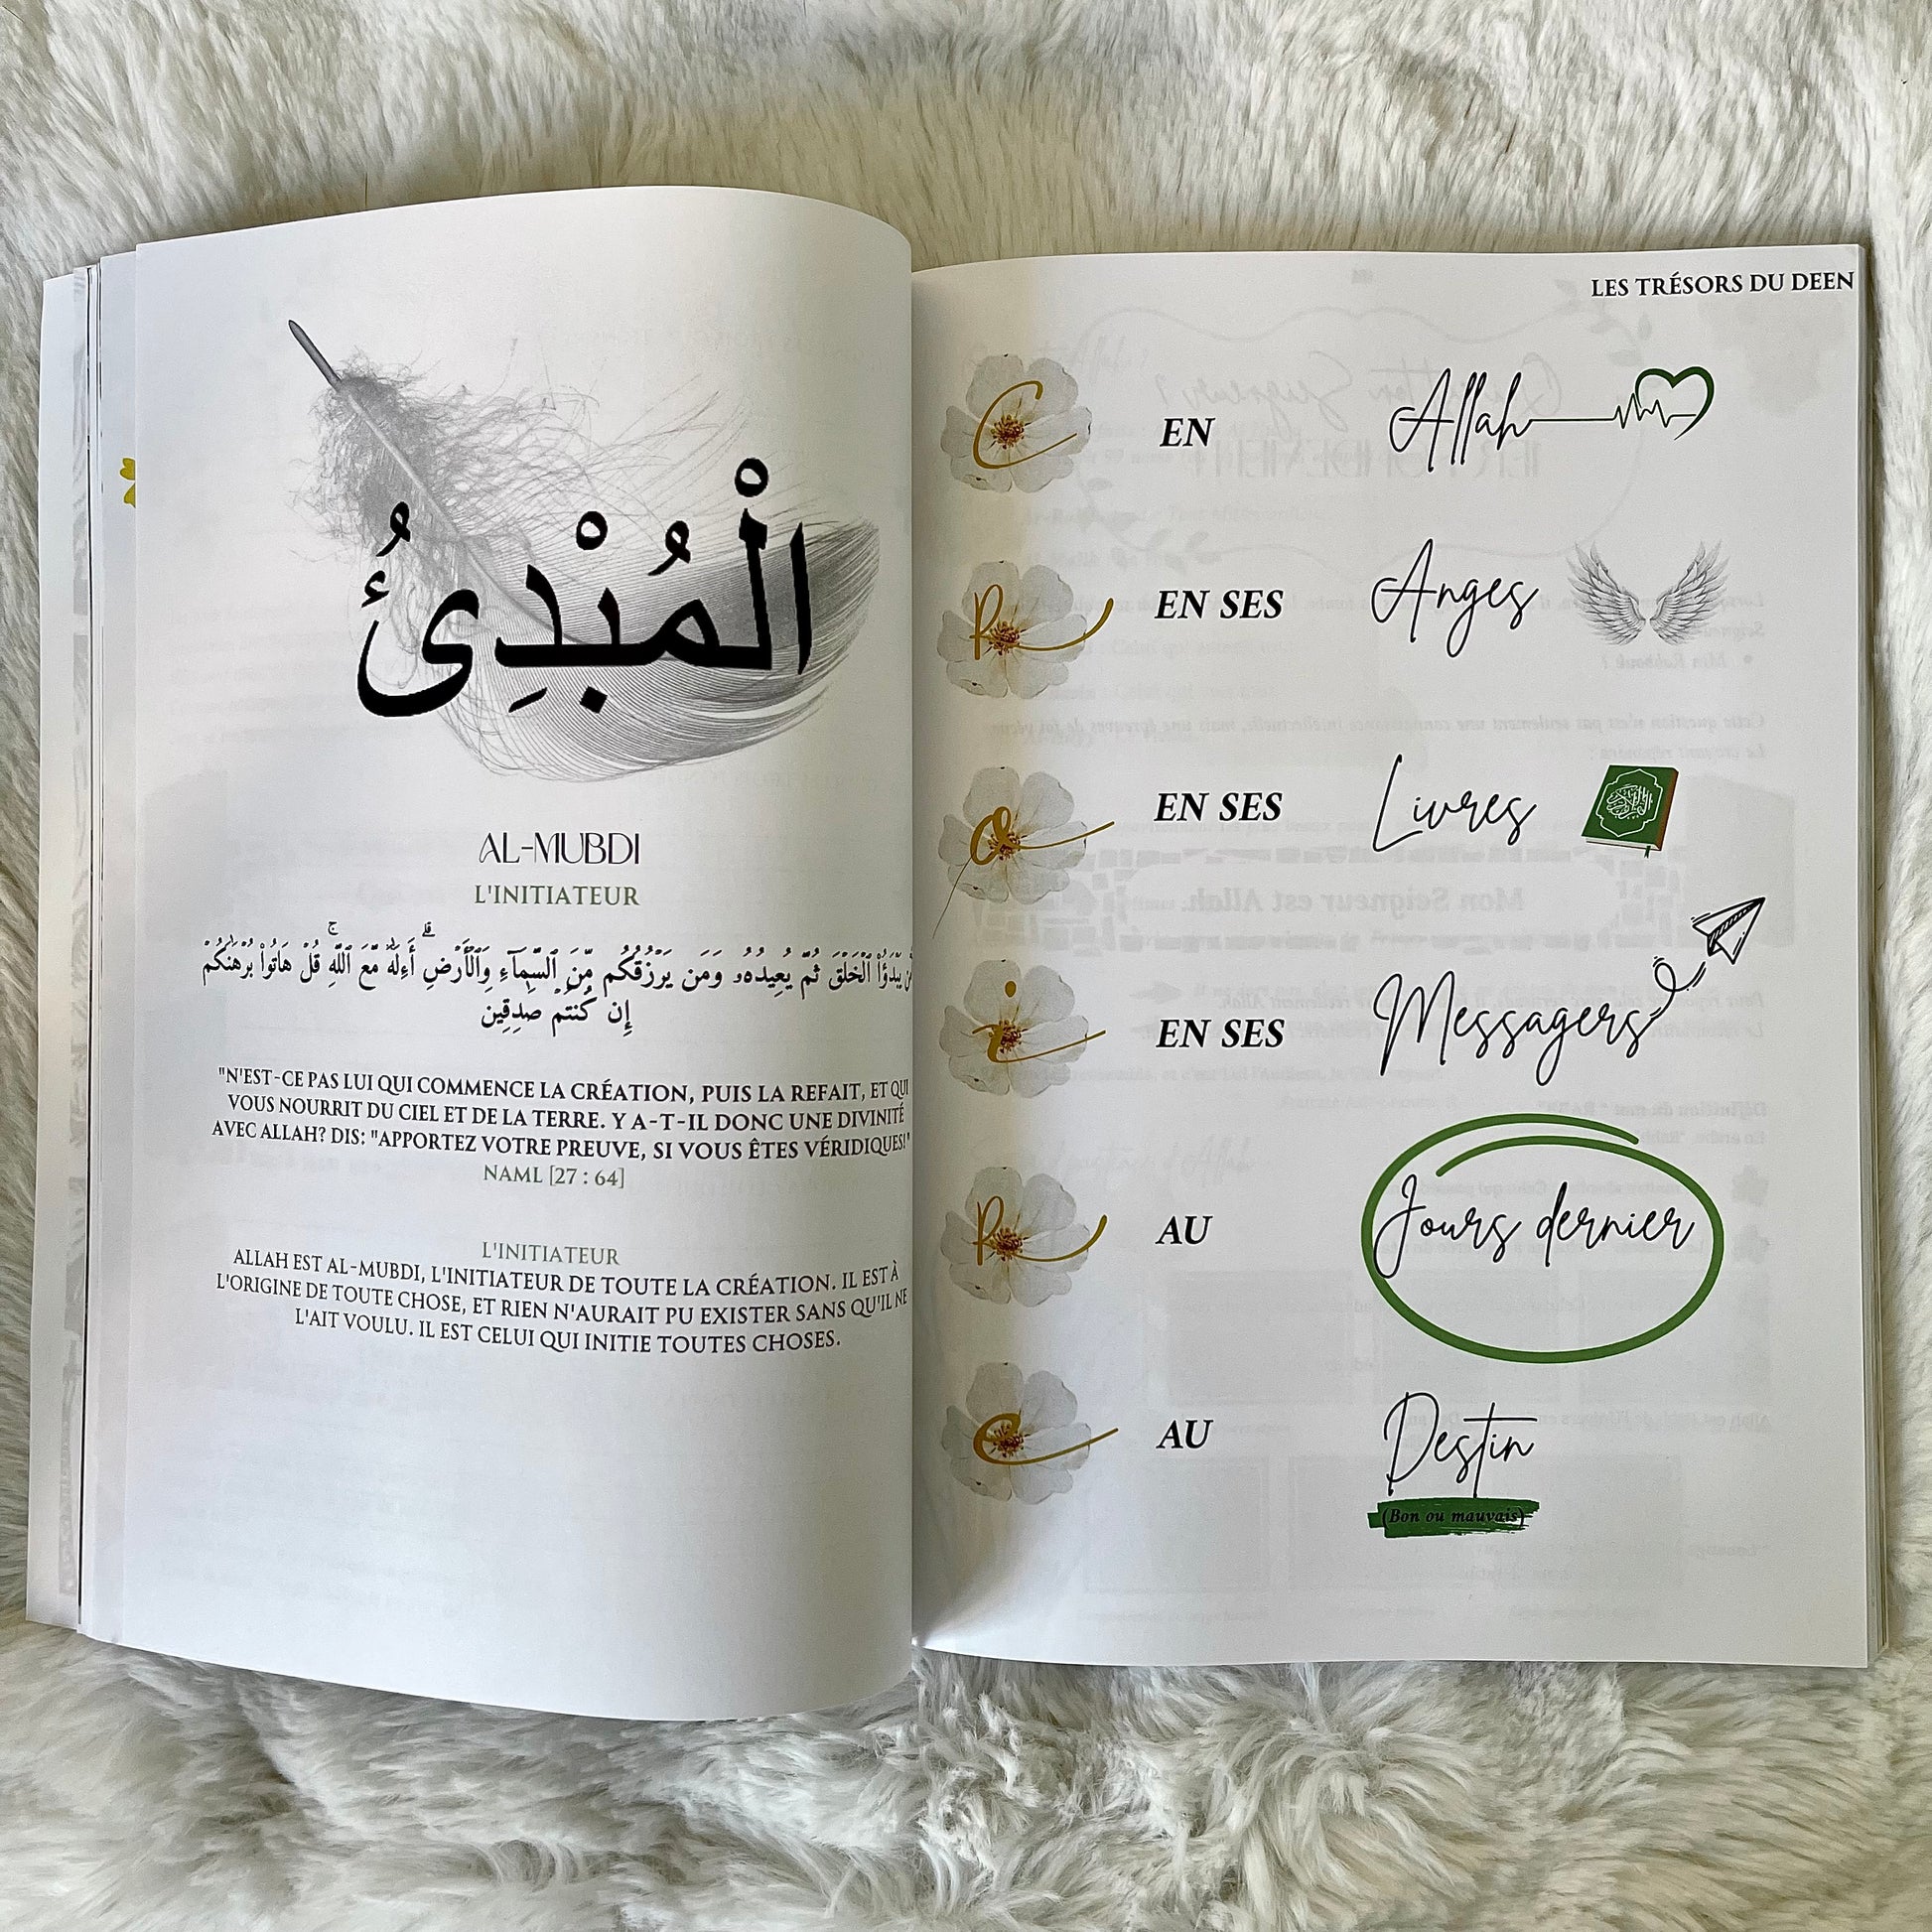 الْمُبْدِئُ
AL-MUBDI
L'INITIATEUR
يَبْدَؤُا۟ ٱلْخَلْقَ ثُمَّ يُعِيدُهُۥ وَمَن يَرْزُقُكُم مِّنَ ٱلسَّمَآءِ وَٱلْأَرْضِ ۗ أَءِلَٰهٌ مَّعَ ٱللَّهِ ۚ قُلْ هَاتُوا۟ بُرْهَٰنَكُمْ
إِن كُنتُمْ صَٰدِقِين
"N'EST-CE PAS LUI QUI COMMENCE LA CRÉATION, PUIS LA REFAIT, ET QUI
VOUS NOURRIT DU CIEL ET DE LA TERRE. Y A-T-IL DONC UNE DIVINITÉ
AVEC ALLAH? DIS: "APPORTEZ VOTRE PREUVE, SI VOUS ÊTES VÉRIDIQUES!"
NAML [27 : 64]
L'INITIATEUR
ALLAH EST AL-MUBDI, L'INITIATEUR DE TOUTE LA CRÉATION. IL EST À
L'ORIGINE DE TOUTE CHOSE, ET RIEN N'AURAIT PU EXISTER SANS QU'IL NE
L'AIT VOULU. IL EST CELUI QUI INITIE TOUTES CHOSES.
LES TRÉSORS DU DEEN
C EN Allah
R EN SES Anges
o EN SES Livres
i EN SES Messagers
R AU Jours dernier
e AU Destin
(Bon ou mauvais)